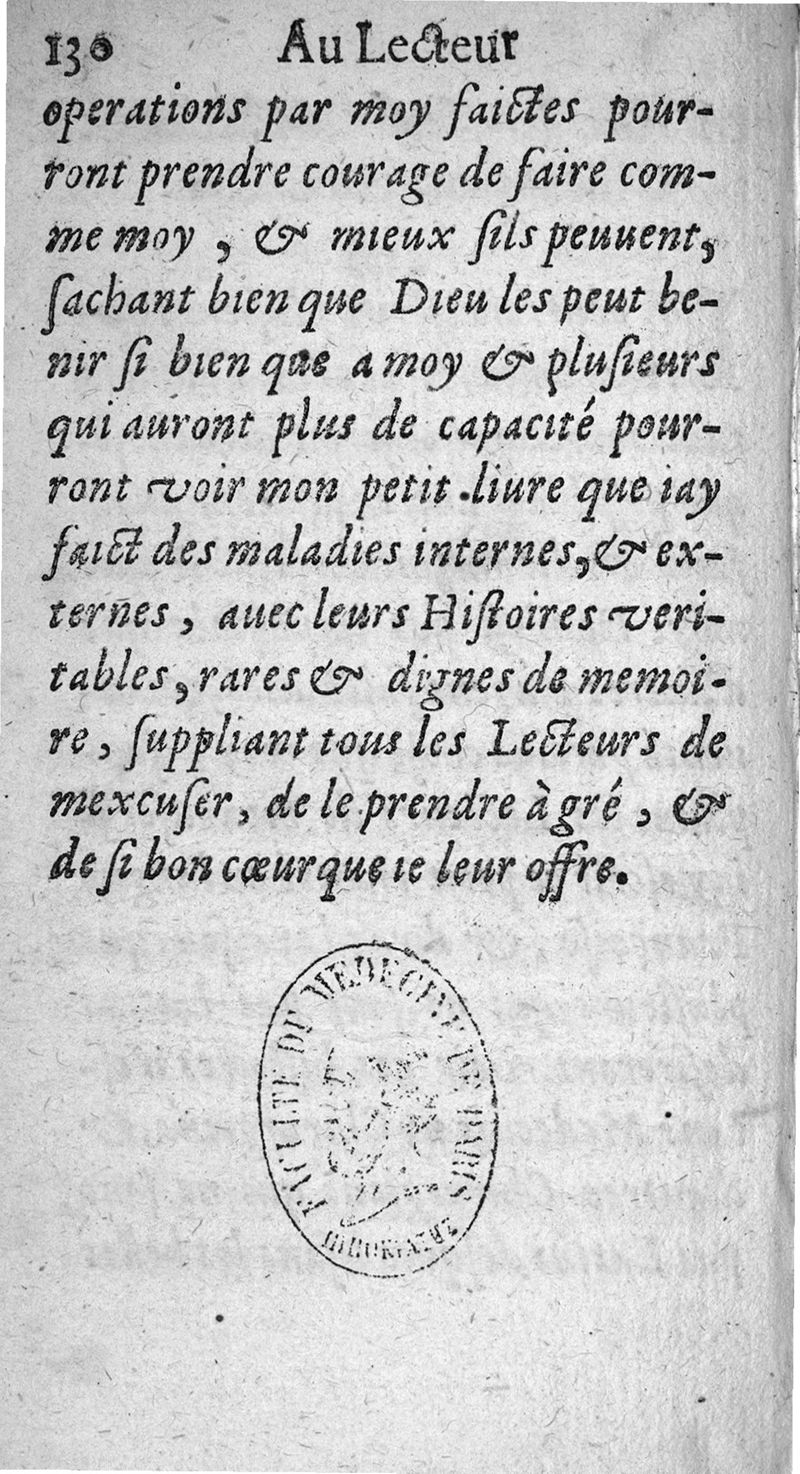 130 Au Lecteur
operations par moy faictes pour-
ront prendre courage de faire com-
me moy , & mieux ſils peuuent,
ſachant bien que Dieu les peut be-
nir ſi bien que a moy & pluſieurs
qui auront plus de capacité pour-
ront voir mon petit .liure que iay
faict des maladies internes,& ex-
ternes , auec leurs Hiſtoires veri-
tables, rares & dignes de memoi-
re , ſuppliant tous les Lecteurs de
mexcuſer, de le prendre à gré , &
de ſi bon cœur que ie leur offre.
FACULTE DE MEDECINE DE PARIS